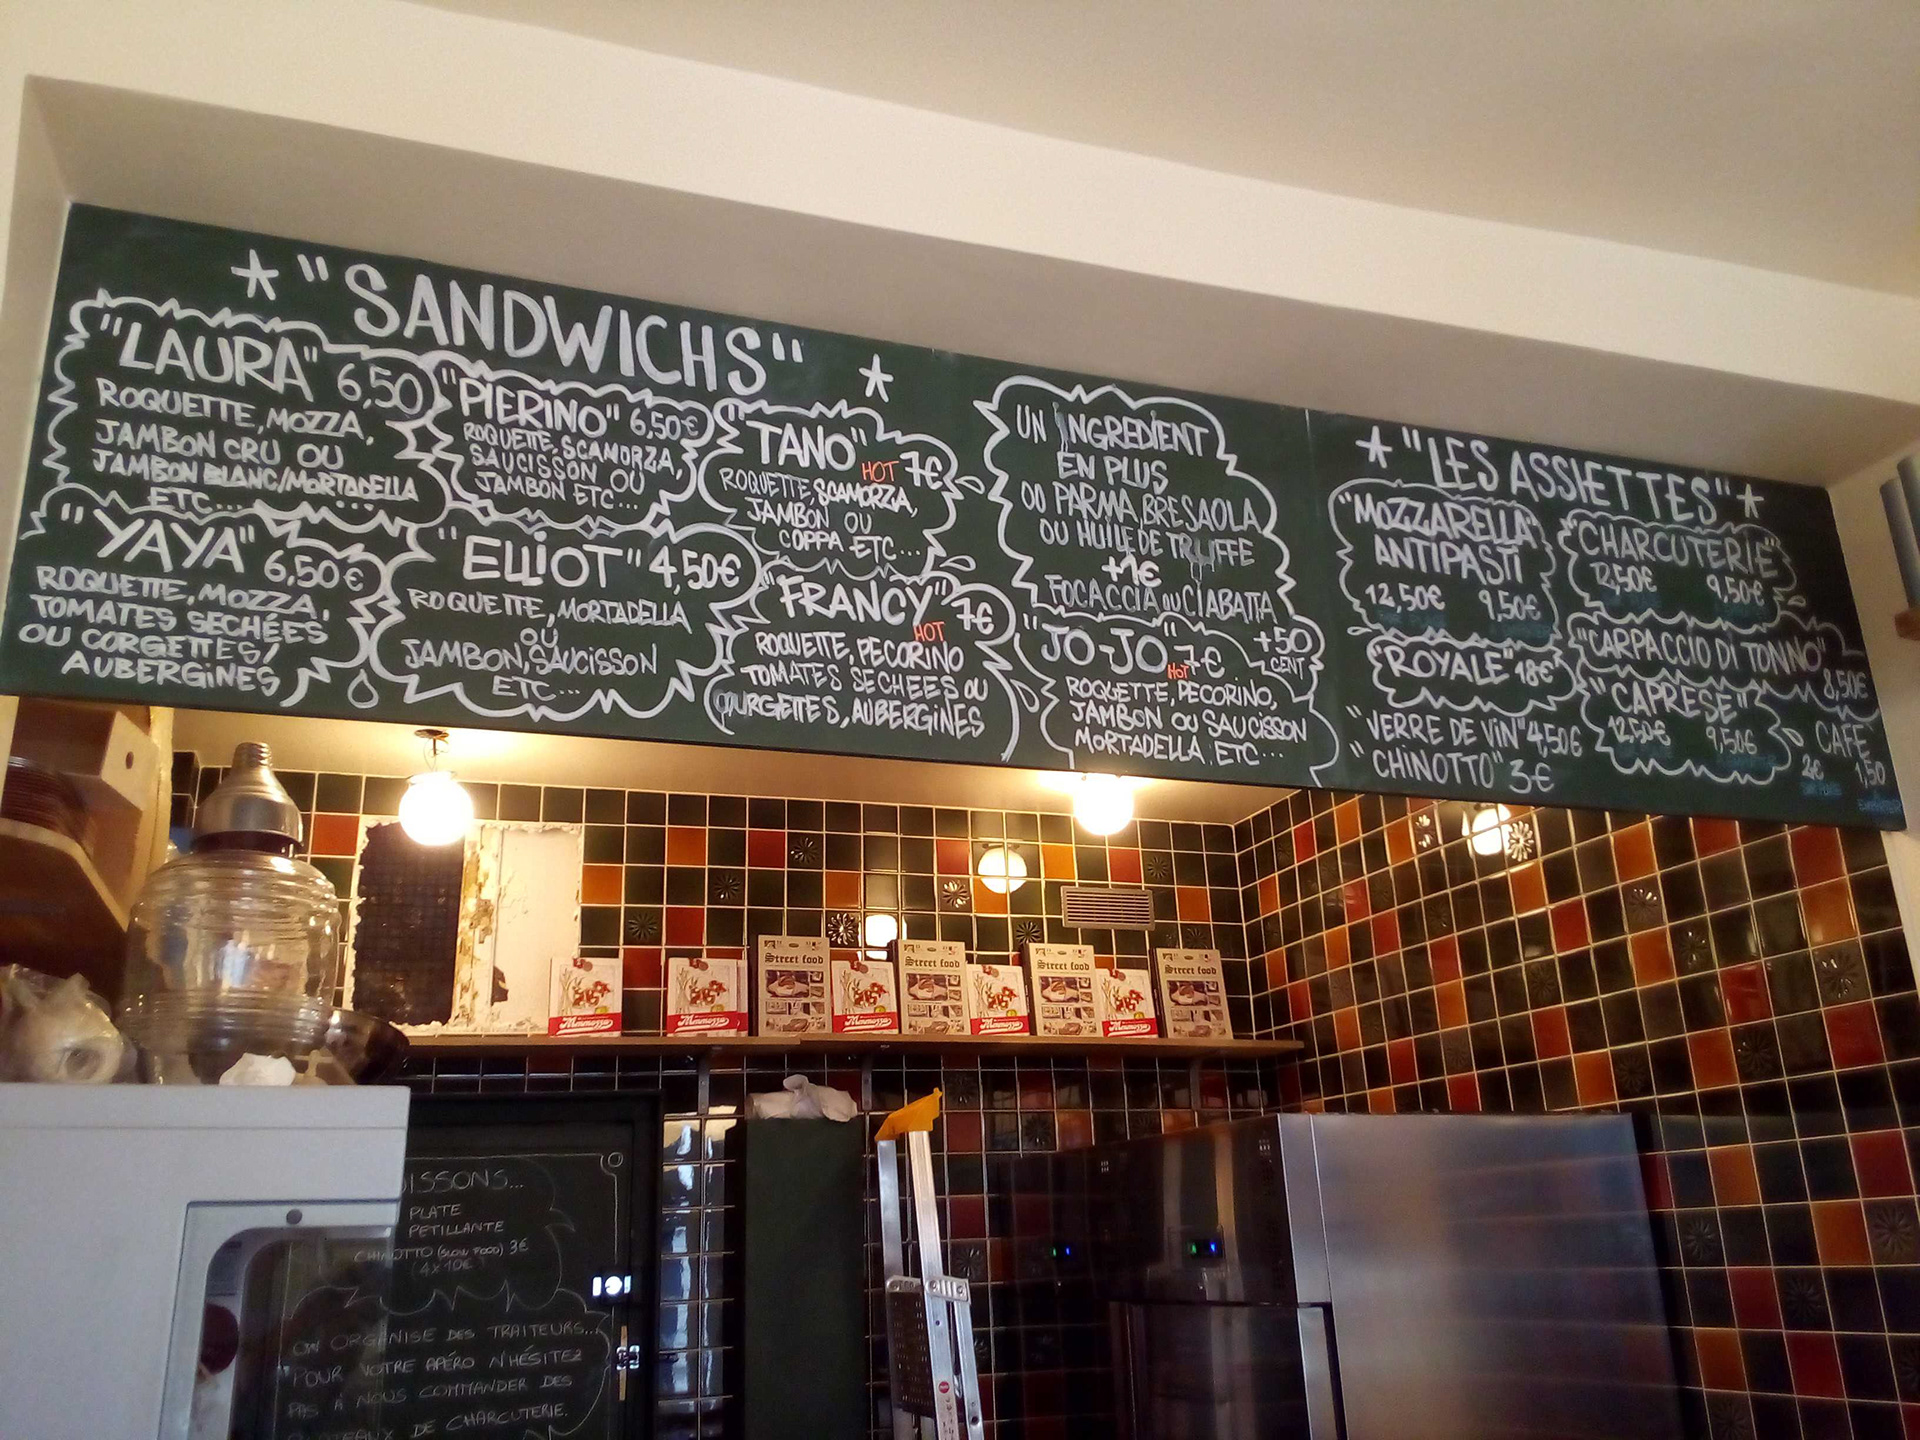 "SANDWICHS"
"LAURA" 6,50
ROQUETTE, MOZZA,
JAMBON CRU OU
JAMBON BLANC/MORTADELLA
ETC...
"PIERINO" 6,50€
ROQUETTE, SCAMORZA,
SAUCISSON OU
JAMBON ETC...
"TANO" HOT 7€
ROQUETTE, SCAMORZA,
JAMBON OU
COPPA ETC...
"YAYA" 6,50€
ROQUETTE, MOZZA,
TOMATES SECHÉES
OU CORGETTES/
AUBERGINES
"ELLIOT" 4,50€
ROQUETTE, MORTADELLA
OU
JAMBON, SAUCISSON
ETC...
"FRANCY" 7€
HOT
ROQUETTE, PECORINO
TOMATES SECHEES OU
OURGETTES, AUBERGINES
UN INGREDIENT
EN PLUS
OU PARMA, BRESAOLA
OU HUILE DE TRUFFE
+1€
FOCACCIA OU CIABATTA
+50
CENT
"JO-JO" HOT 7€
ROQUETTE, PECORINO,
JAMBON OU SAUCISSON
MORTADELLA. ETC...
"LES ASSIETTES"
"MOZZARELLA"
ANTIPASTI
12,50€ 9,50€
"CHARCUTERIE"
12,50€ 9,50€
"ROYALE" 18€
"CARPACCIO DI TONNO"
8,50€
"CAPRESE"
12,50€ 9,50€
"VERRE DE VIN" 4,50€
"CHINOTTO" 3€
CAFE
2€ 1,50
Street food
Street food
Street food
Street food
Mmmozza
Mmmozza
Mmmozza
Mmmozza
Mmmozza
OISSONS...
PLATE
PETILLANTE
CHINOTTO (SLOW FOOD) 3€
(4x10€)
ON ORGANISE DES TRAITEURS...
POUR VOTRE APÉRO N'HÉSITEZ
PAS À NOUS COMMANDER DES
PLATEAUX DE CHARCUTERIE.